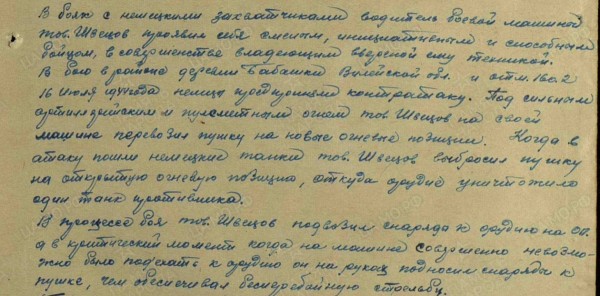 В боях с немецкими захватчиками водитель боевой машиной
тов. Швецов проявил себя смелым, инициативным и способным
бойцом, в совершенстве владеющим вверенной ему техникой.
В бою в районе деревни Бабашки обл. и отм. 160.2
16 июля немцы предприняли контратаку. Под сильным
артиллерийским и пулеметным огнем тов Швецов на своей
машине перевозил пушку на новые огневые позиции. Когда в
атаку пошли немецкие танки тов. Швецов выбросил пушку
на открытую огневую позицию, откуда орудие уничтожило
один танк противника.
В процессе боя тов. Швецов подвозил снаряды к орудию на ОП.
а в критический момент когда на машине совершенно невозмо-
жно было подъехать к орудию он на руках подносил снаряды к
пушке, чем обеспечивал бесперебойную стрельбу.